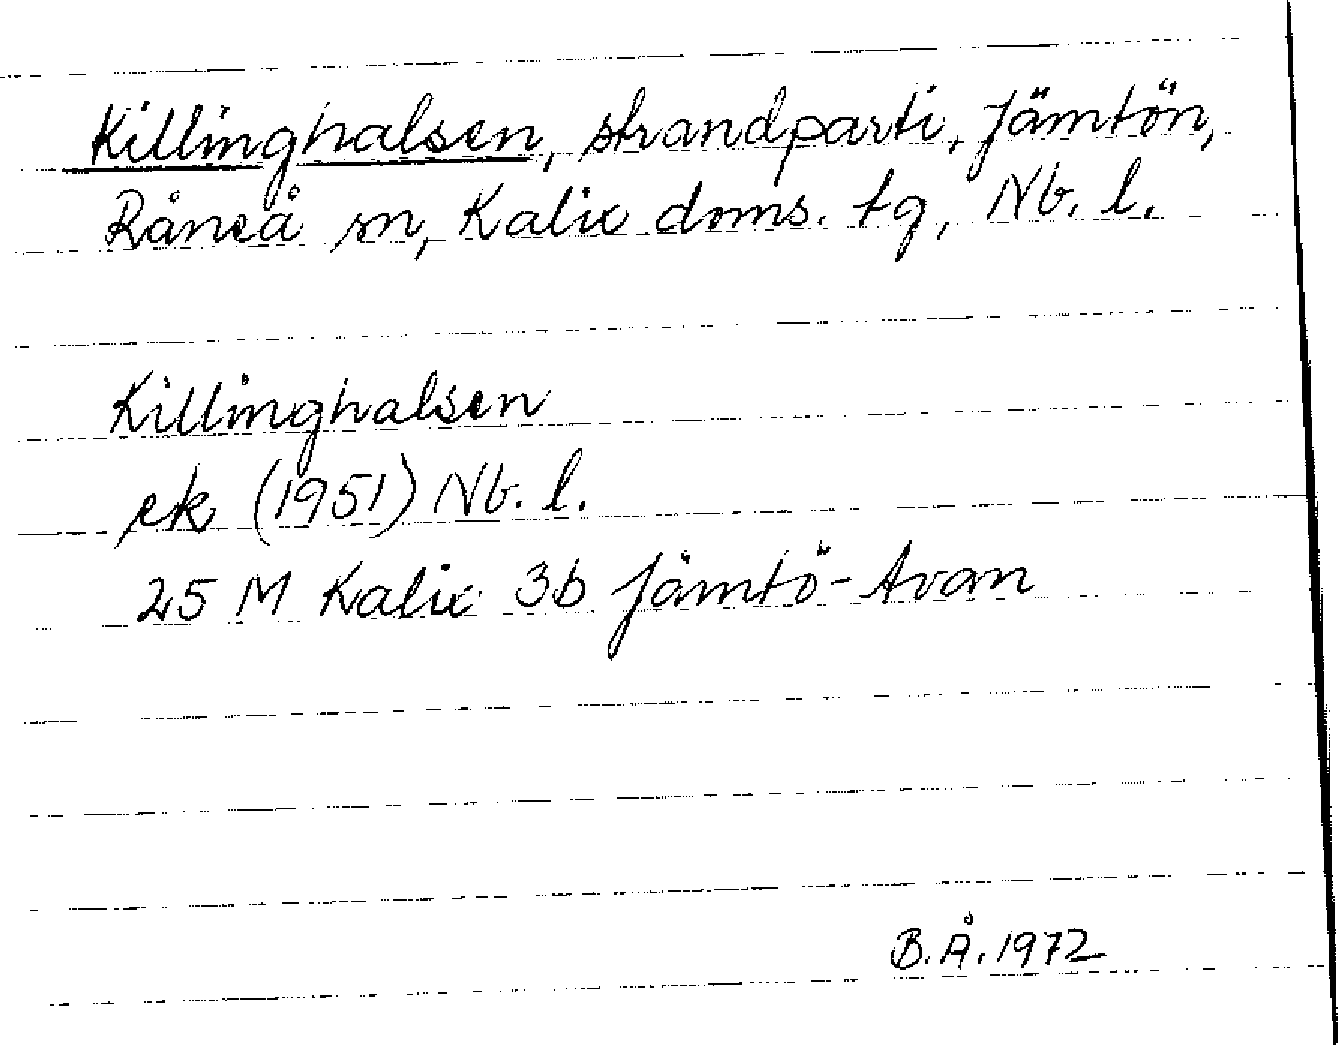 Killinghalsen, strandparti, Jämtön,
Råneå sn, Kalix doms. tg, Nb. l.
Killinghalsen
ek (1951) Nb. l.
25 M Kalix 3b Jämtö-Avan
B.Å. 1972